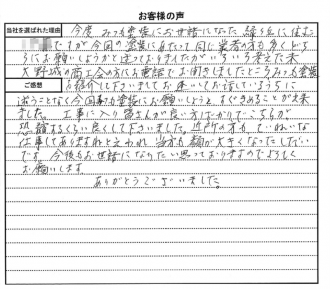 お客様の声
当社を選ばれた理由
今度、みつも塗装にお世話になった縁ヶ丘に住む
ですが今回の塗装にあたって同じ業者の方も多くどち
らにお願いしようかと迷っておりましたがいろいろ考えた末
大野城の商工会の方にお電話でお聞きしましたところみつも塗装
ご感想
を紹介して下さいましてお逢いしてお話しているうちに
迷うことなく今回お願いしようとすぐきめることが出来
ました。工事に入り皆さんが良い方ばかりでこちらが
恐縮するくらい良くして下さいました。近所の方も、ていねいな
仕事してありますねと云われ、当方も鼻が大きくなったしだい
です。今後もお世話になりたいと思っておりますのでよろしく
お願いします。
ありがとうございました。